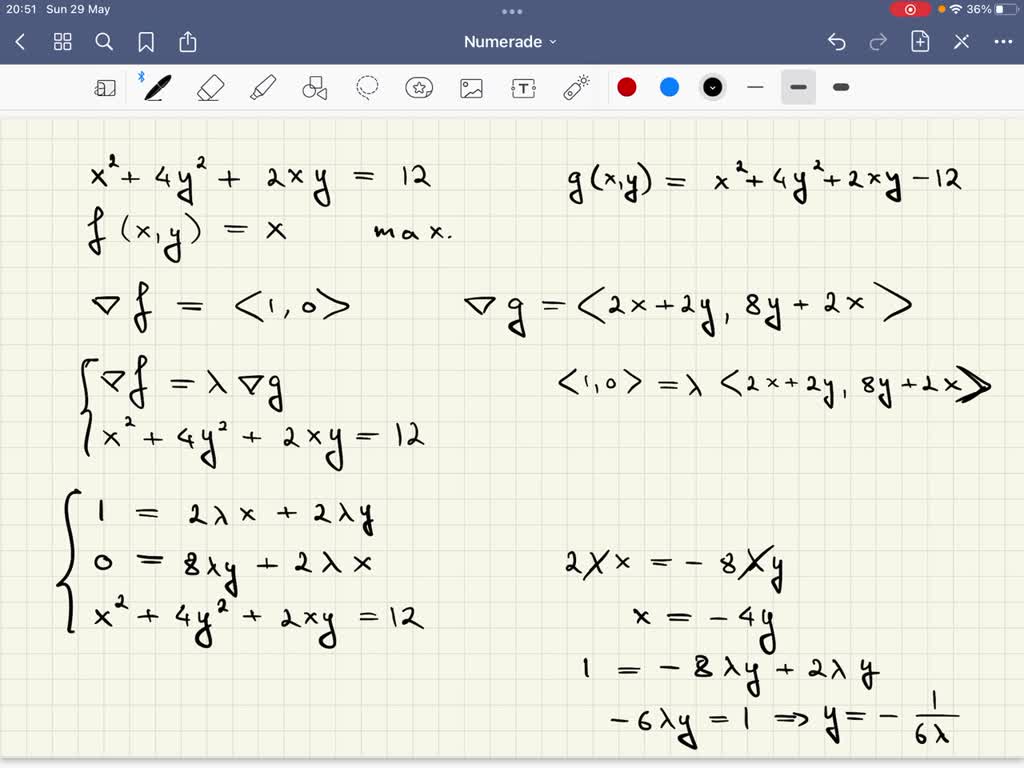 20:51 Sun 29 May 36%
Numerade
x² + 4y² + 2xy = 12
g(x,y) = x² + 4y² + 2xy - 12
f(x,y) = x max.
∇f = <1,0>
∇g = <2x + 2y, 8y + 2x>
∇f = λ∇g
<1,0> = λ <2x + 2y, 8y + 2x>
x² + 4y² + 2xy = 12
1 = 2λx + 2λy
0 = 8λy + 2λx
x² + 4y² + 2xy = 12
2λx = - 8λy
x = - 4y
1 = - 8λy + 2λy
- 6λy = 1 ⇒ y = - 1/6λ